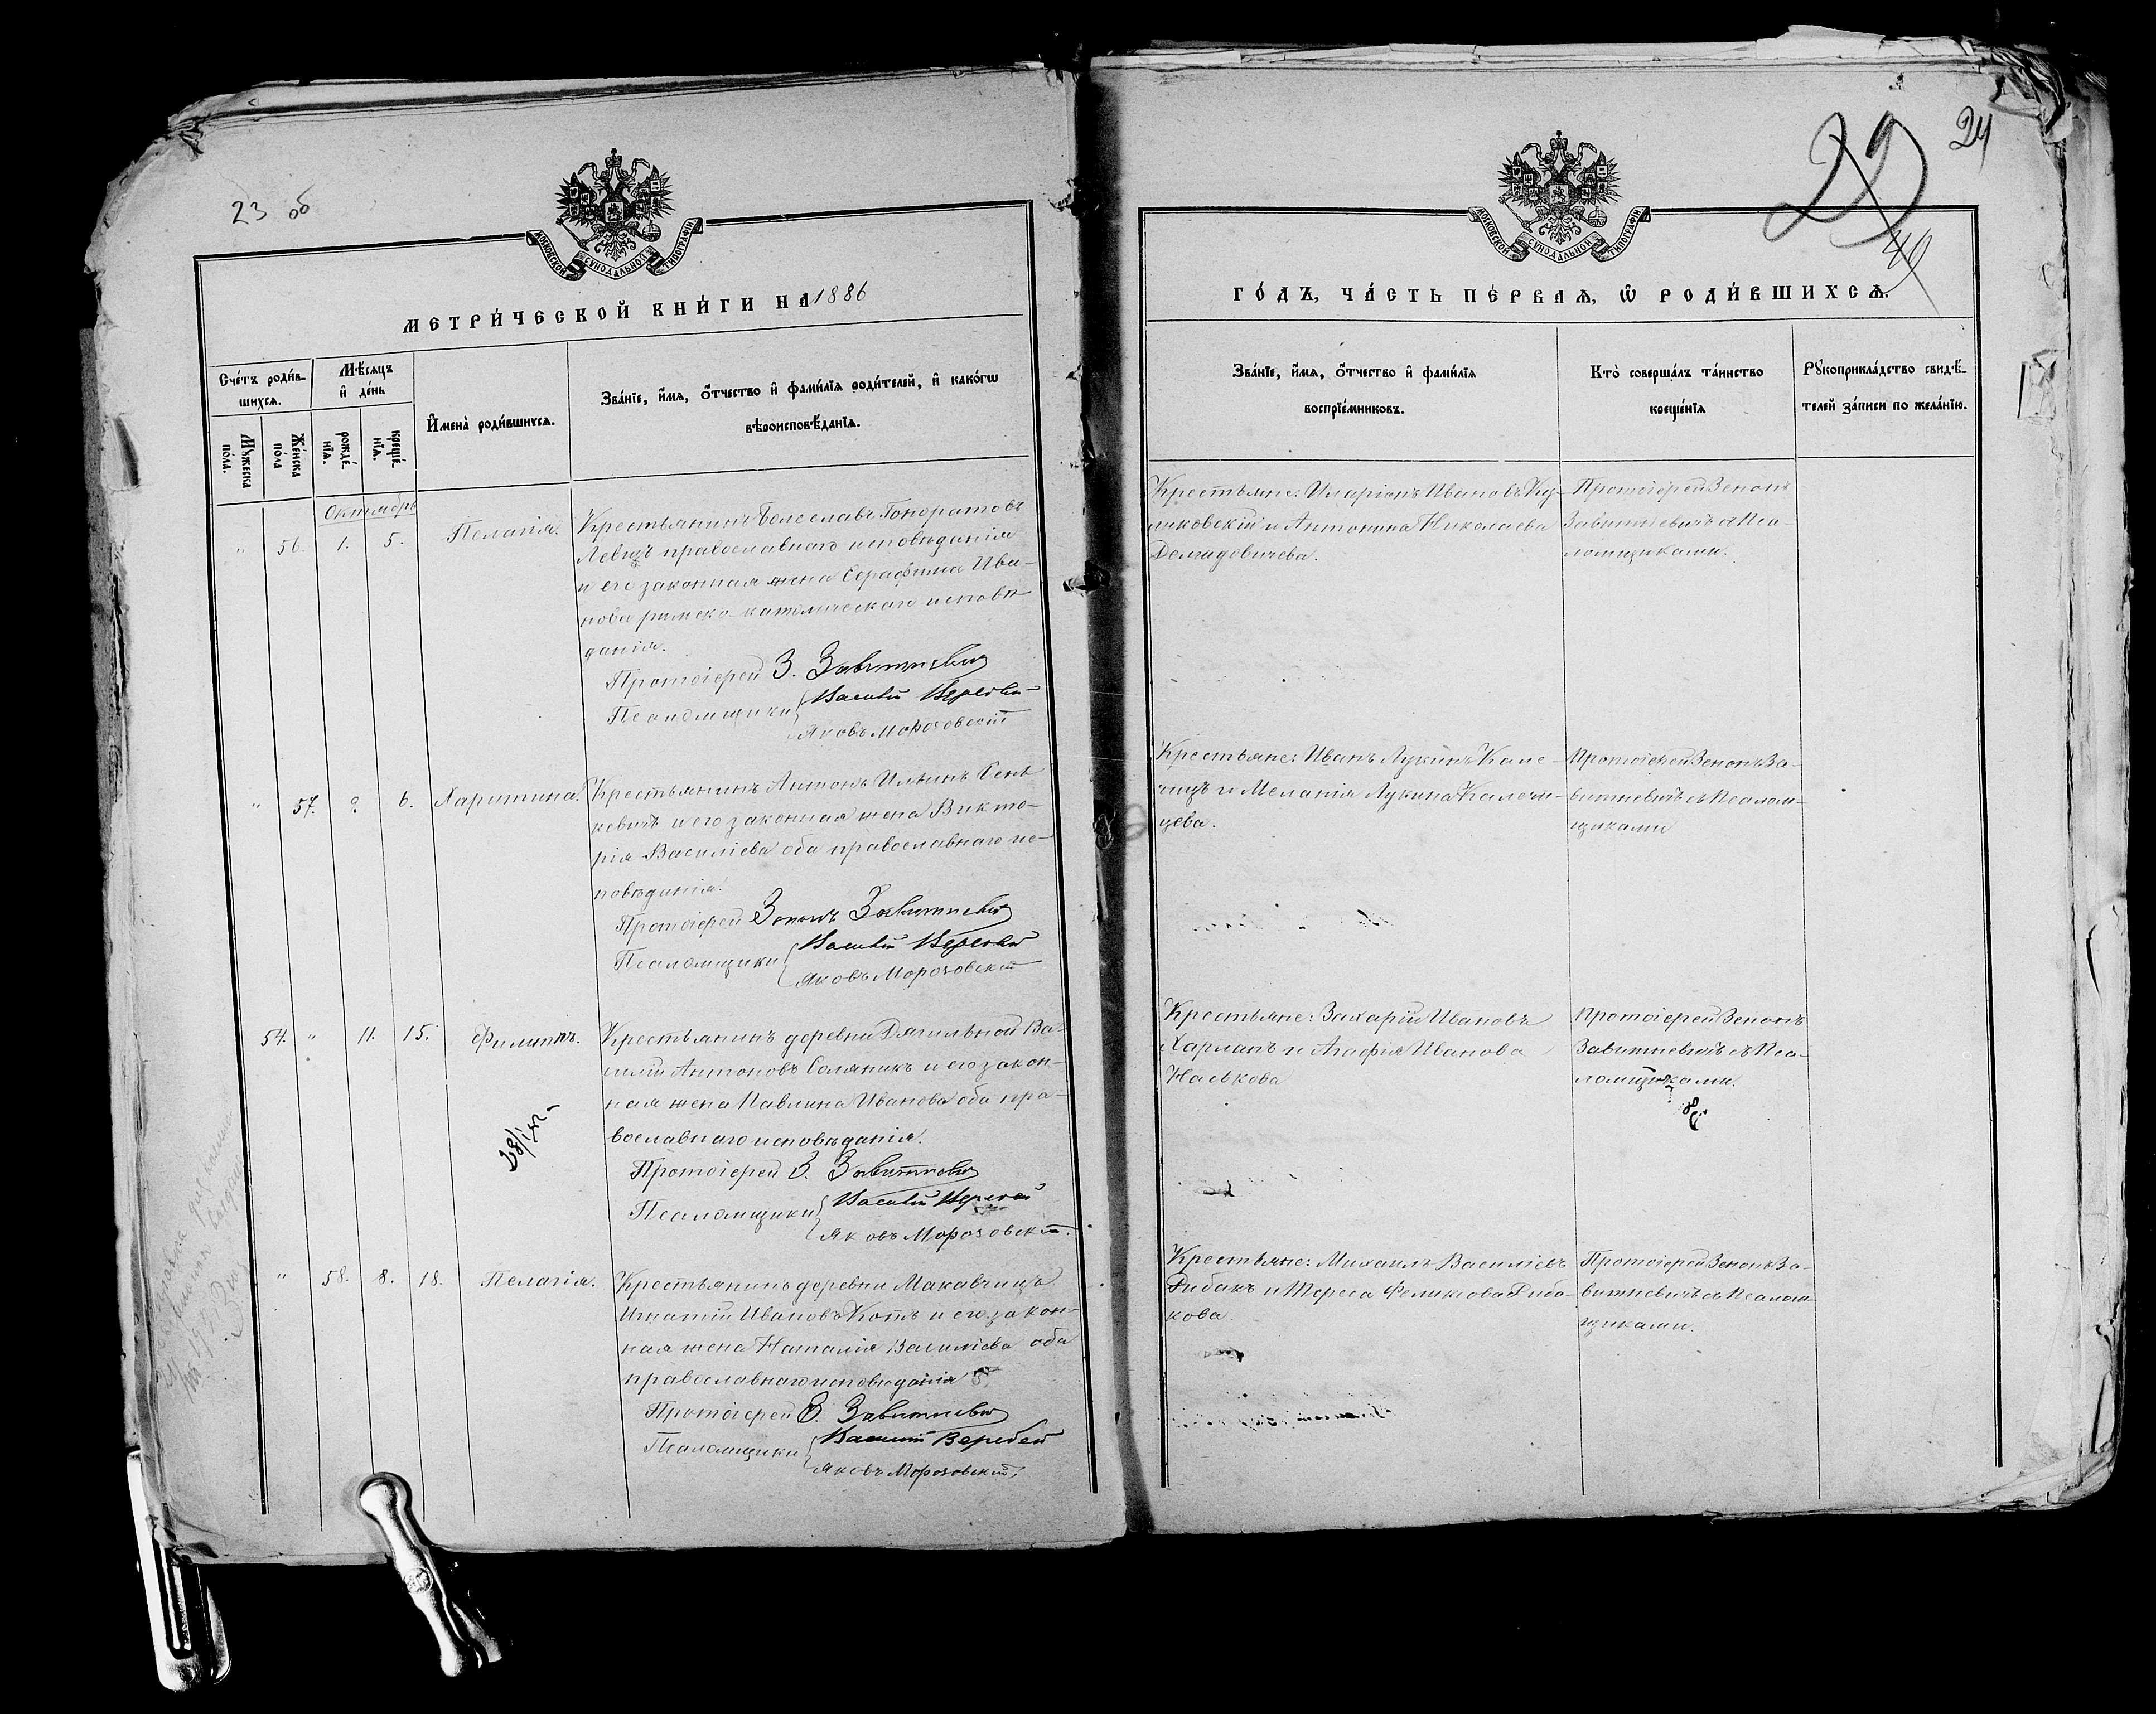 23 об
МОСКОВСКОЙ СѴНОДАЛЬНОЙ ТИПОГРАФІИ
МЕТРИ́ЧЕСКОЙ КНИ́ГИ НА 1886
Сче́тъ роди́в-
шихсѧ.
Мѣ́сѧцъ
и҆ де́нь
Мꙋ́жеска
по́ла.
Же́нска
по́ла
рожде́-
нїѧ.
креще́-
нїѧ.
И҆мена̀ роди́вшихсѧ.
Зва́нїе, и҆́мѧ, ѻ҆́тчество и҆ фами́лїѧ роди́телей, и҆ како́гѡ
вѣроисповѣ́данїѧ.
Октябрь
" 56. 1. 5. Пелагія.
Крестьянинъ Болеславъ Гоноратовъ
Левицъ православнаго исповѣданія
и его законная жена Серафима Ива-
нова римско-католическаго исповѣ-
данія.
Протоіерей З. Завитневичъ
Псаломщики Василій
Яковъ Морозовскій
" 57. 6. Харитина.
Крестьянинъ Антонъ Ильинъ Сень
кевичъ и его законная жена Викто-
рія Василіева оба православнаго ис-
повѣданія.
Протоіерей Зенонъ Завитневичъ
Псаломщики Василій
Яковъ Морозовскій
54. " 11. 15. Филиппъ.
Крестьянинъ деревни Дягильной Ва-
силій Антоновъ Соляникъ и его закон-
ная жена Павлина Иванова оба пра-
вославнаго исповѣданія.
Протоіерей З. Завитневичъ
Псаломщики Василій
Яковъ Морозовскій.
" 58. 8. 18. Пелагія.
Крестьянинъ деревни Макавчицъ
Игнатій Ивановъ Котъ и его закон-
ная жена Наталія Василіева оба
православнаго исповѣданія
Протоіерей З. Завитневичъ
Псаломщики Василій Веребей
Яковъ Морозовскій.
29
24
40
МОСКОВСКОЙ СѴНОДАЛЬНОЙ ТИПОГРАФІИ
ГО́ДЪ, ЧА́СТЬ ПЕ́РВАѦ, Ѡ҆ РОДИ́ВШИХСѦ.
Зва́нїе, и҆́мѧ, ѻ҆́тчество и҆ фами́лїѧ
воспрїе́мниковъ.
Кто̀ соверша́лъ та́инство
креще́нїѧ
Рꙋкоприкла́дство свидѣ́-
телей за́писи по жела́нїю.
Крестьяне: Иларіонъ Ивановъ Ку-
ликовскій и Антонина Николаева
Демидовичева.
Протоіерей Зенонъ
Завитневичъ съ Пса-
ломщиками.
Крестьяне: Иванъ Лукинъ Кале-
чицъ и Меланія Лукина Калечи-
цева.
Протоіерей Зенонъ За-
витневичъ съ Псалом-
щиками
Крестьяне: Захарій Ивановъ
Харланъ и Агафія Иванова
Наськова
Протоіерей Зенонъ
Завитневичъ съ Пса-
ломщиками.
Крестьяне: Михаилъ Василіевъ
Рибакъ и Тереса Феликсова Риба-
кова
Протоіерей Зенонъ За-
витневичъ съ Псалом-
щиками.